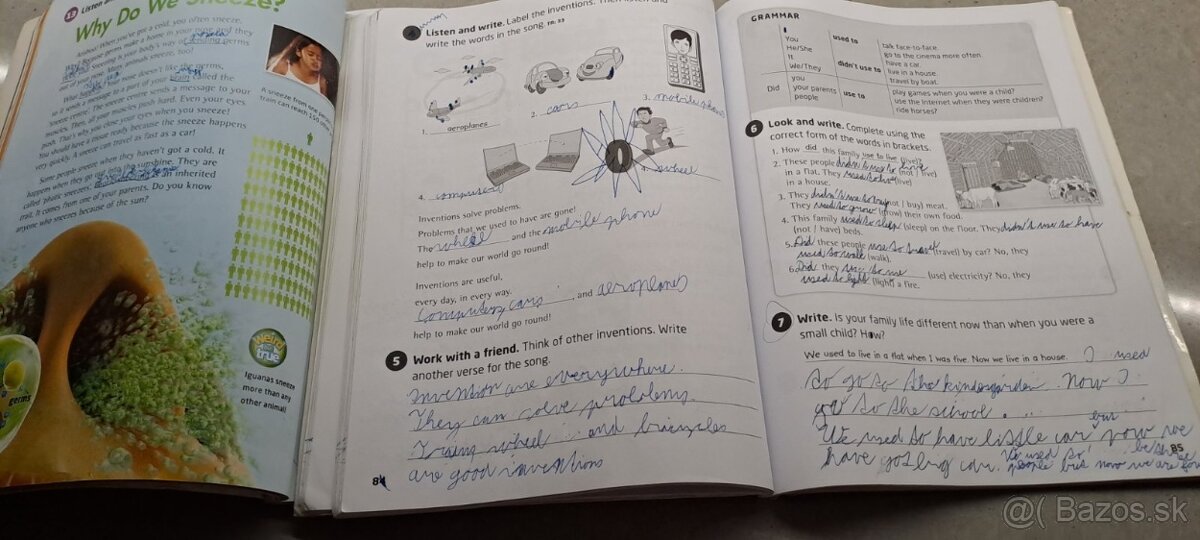 13 Listen
Why Do We Sneeze?
Achoo! When you've got a cold, you often sneeze.
Why? Because germs make a home in your nose and they
sneezing is your body's way of sending germs
out of your nose. Many animals sneeze, too!
What happens? Your nose doesn't like the germs,
so it sends a message to a part of your brain called the
sneeze centre. The sneeze centre sends a message to your
muscles. Then, all your muscles push hard. Even your eyes
push. That's why you close your eyes when you sneeze!
You should have a tissue ready because the sneeze happens
very quickly. A sneeze can travel as fast as a car!
Some people sneeze when they haven't got a cold. It
happens when they go out into the sunshine. They are
called 'photic sneezers'. inherited
trait. It comes from one of your parents. Do you know
anyone who sneezes because of the sun?
A sneeze from one
train can reach 150
Weird but true
Iguanas sneeze
more than any
other animal!
germs
4 Listen and write. Label the inventions. Then listen and
write the words in the song. TR: 33
1. aeroplanes
2. cars
3. mobile phone
4.
wheel
Inventions solve problems.
Problems that we used to have are gone!
The wheel and the mobile phone
help to make our world go round!
Inventions are useful,
every day, in every way.
Computers, cars, and aeroplanes
help to make our world go round!
5 Work with a friend. Think of other inventions. Write
another verse for the song.
Invention are everywhere.
They can solve problems.
wheel and
are good inventions
84
GRAMMAR
I
You
He/She
It
We/They
used to
didn't use to
talk face-to-face.
go to the cinema more often.
have a car.
live in a house.
travel by boat.
Did
you
your parents
people
use to
play games when you were a child?
use the Internet when they were children?
ride horses?
6 Look and write. Complete using the
correct form of the words in brackets.
1. How did this family use to live (live)?
2. These people didn't use to live (not / live)
in a flat. They used to live (live)
in a house.
3. They didn't use to buy (not / buy) meat.
They used to grow (grow) their own food.
4. This family used to sleep (sleep) on the floor. They didn't use to have
(not / have) beds.
5. Did these people use to travel (travel) by car? No, they
used to walk (walk).
6. Did they use to use (use) electricity? No, they
used to light (light) a fire.
7 Write. Is your family life different now than when you were a
small child? How?
We used to live in a flat when I was five. Now we live in a house. I used
to go to the kindergarden. Now I
go to the school.
We used to have little car but now we
have got big car. We used to be three
people but now we are four
85
@( Bazos.sk